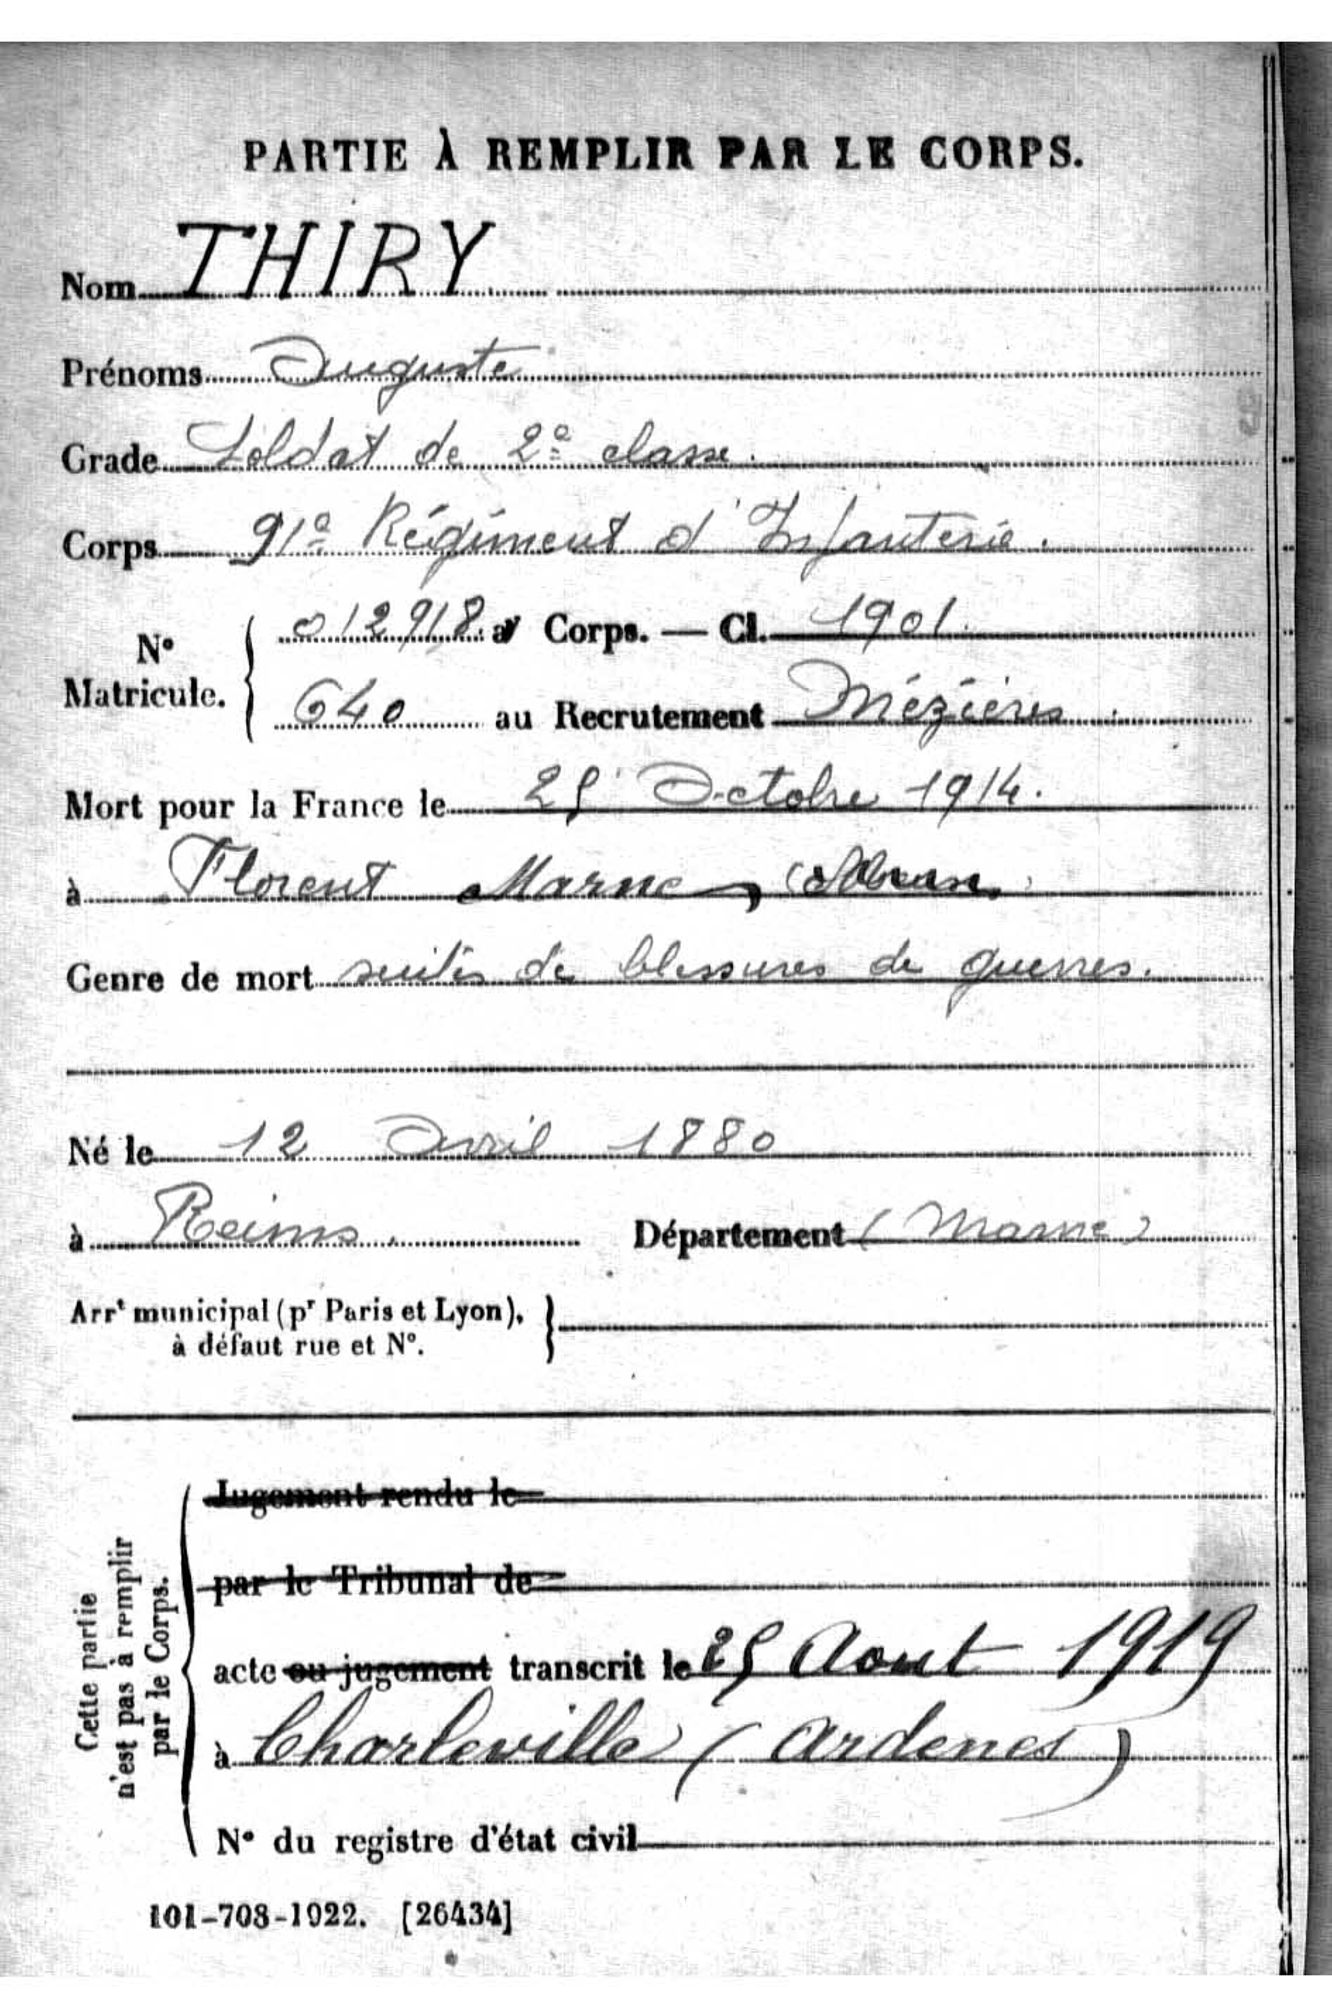 PARTIE À REMPLIR PAR LE CORPS.
Nom THIRY
Prénoms Auguste
Grade Soldat de 2e classe.
Corps 91e Régiment d'Infanterie.
N° Matricule. 012918 au Corps. — Cl. 1901
640 au Recrutement Mézières
Mort pour la France le 25 Octobre 1914.
à Florent Marne
Genre de mort suites de blessures de guerres.
Né le 12 Avril 1880
à Reims. Département (Marne)
Arrt municipal (pr Paris et Lyon),
à défaut rue et N°.
Cette partie
n'est pas à remplir
par le Corps.
Jugement rendu le
par le Tribunal de
acte ou jugement transcrit le 25 Aout 1919
à Charleville (Ardenes)
N° du registre d'état civil
101-708-1922. [26434]